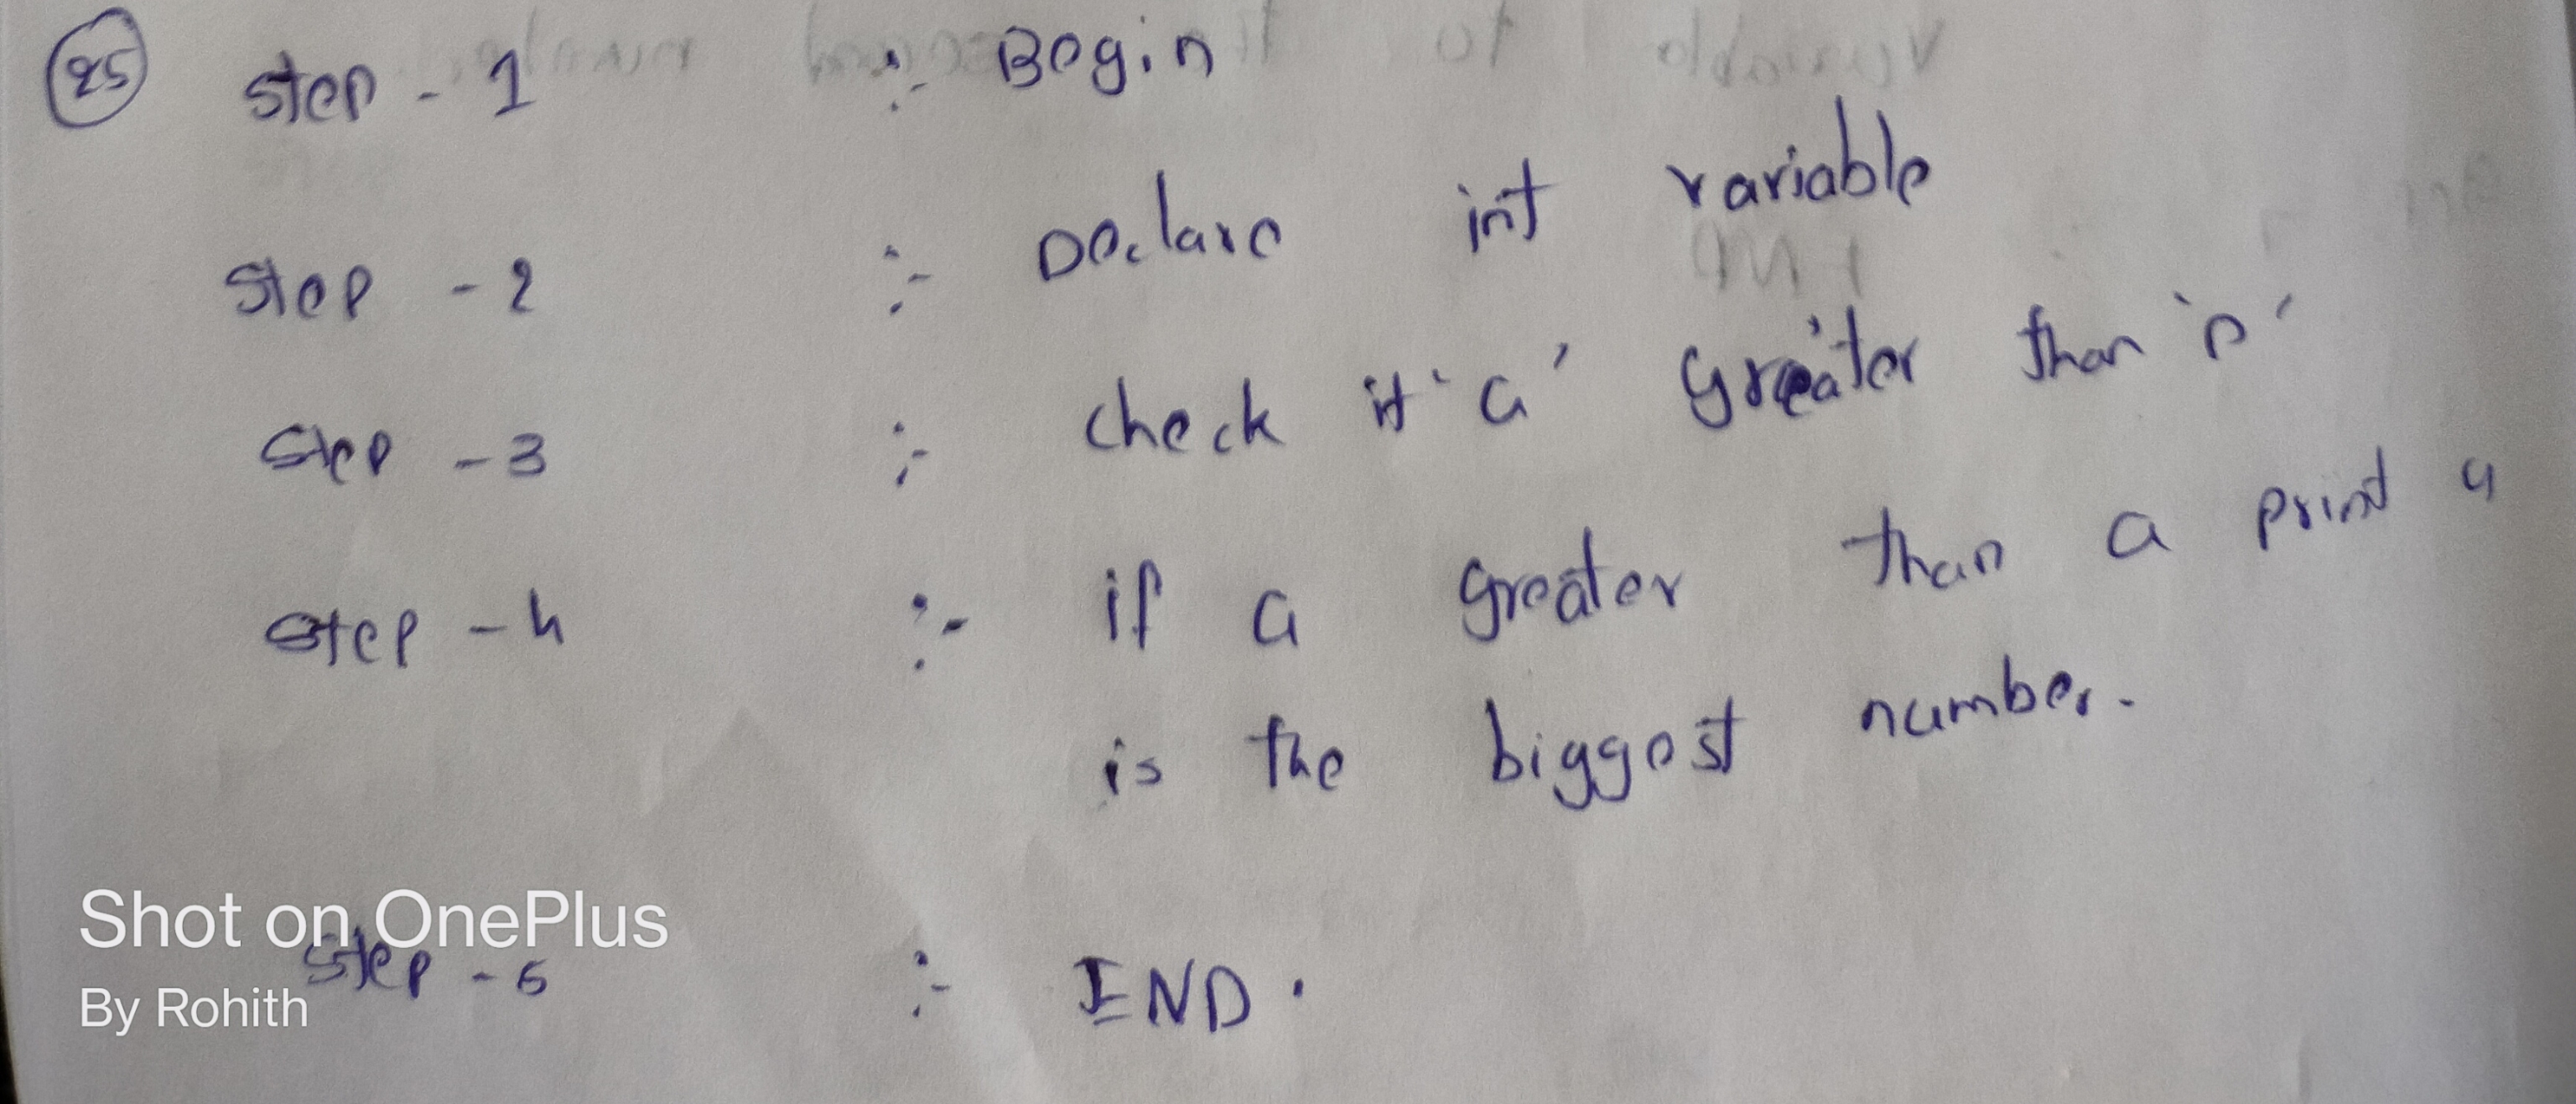 25 Step - 1 :- Begin
Step - 2 :- Declare int variable
Step - 3 :- check if 'a' greater than 'n'
Step - 4 :- if a greater than a print a
is the biggest number.
Shot on OnePlus
Step - 5 :- END.
By Rohith